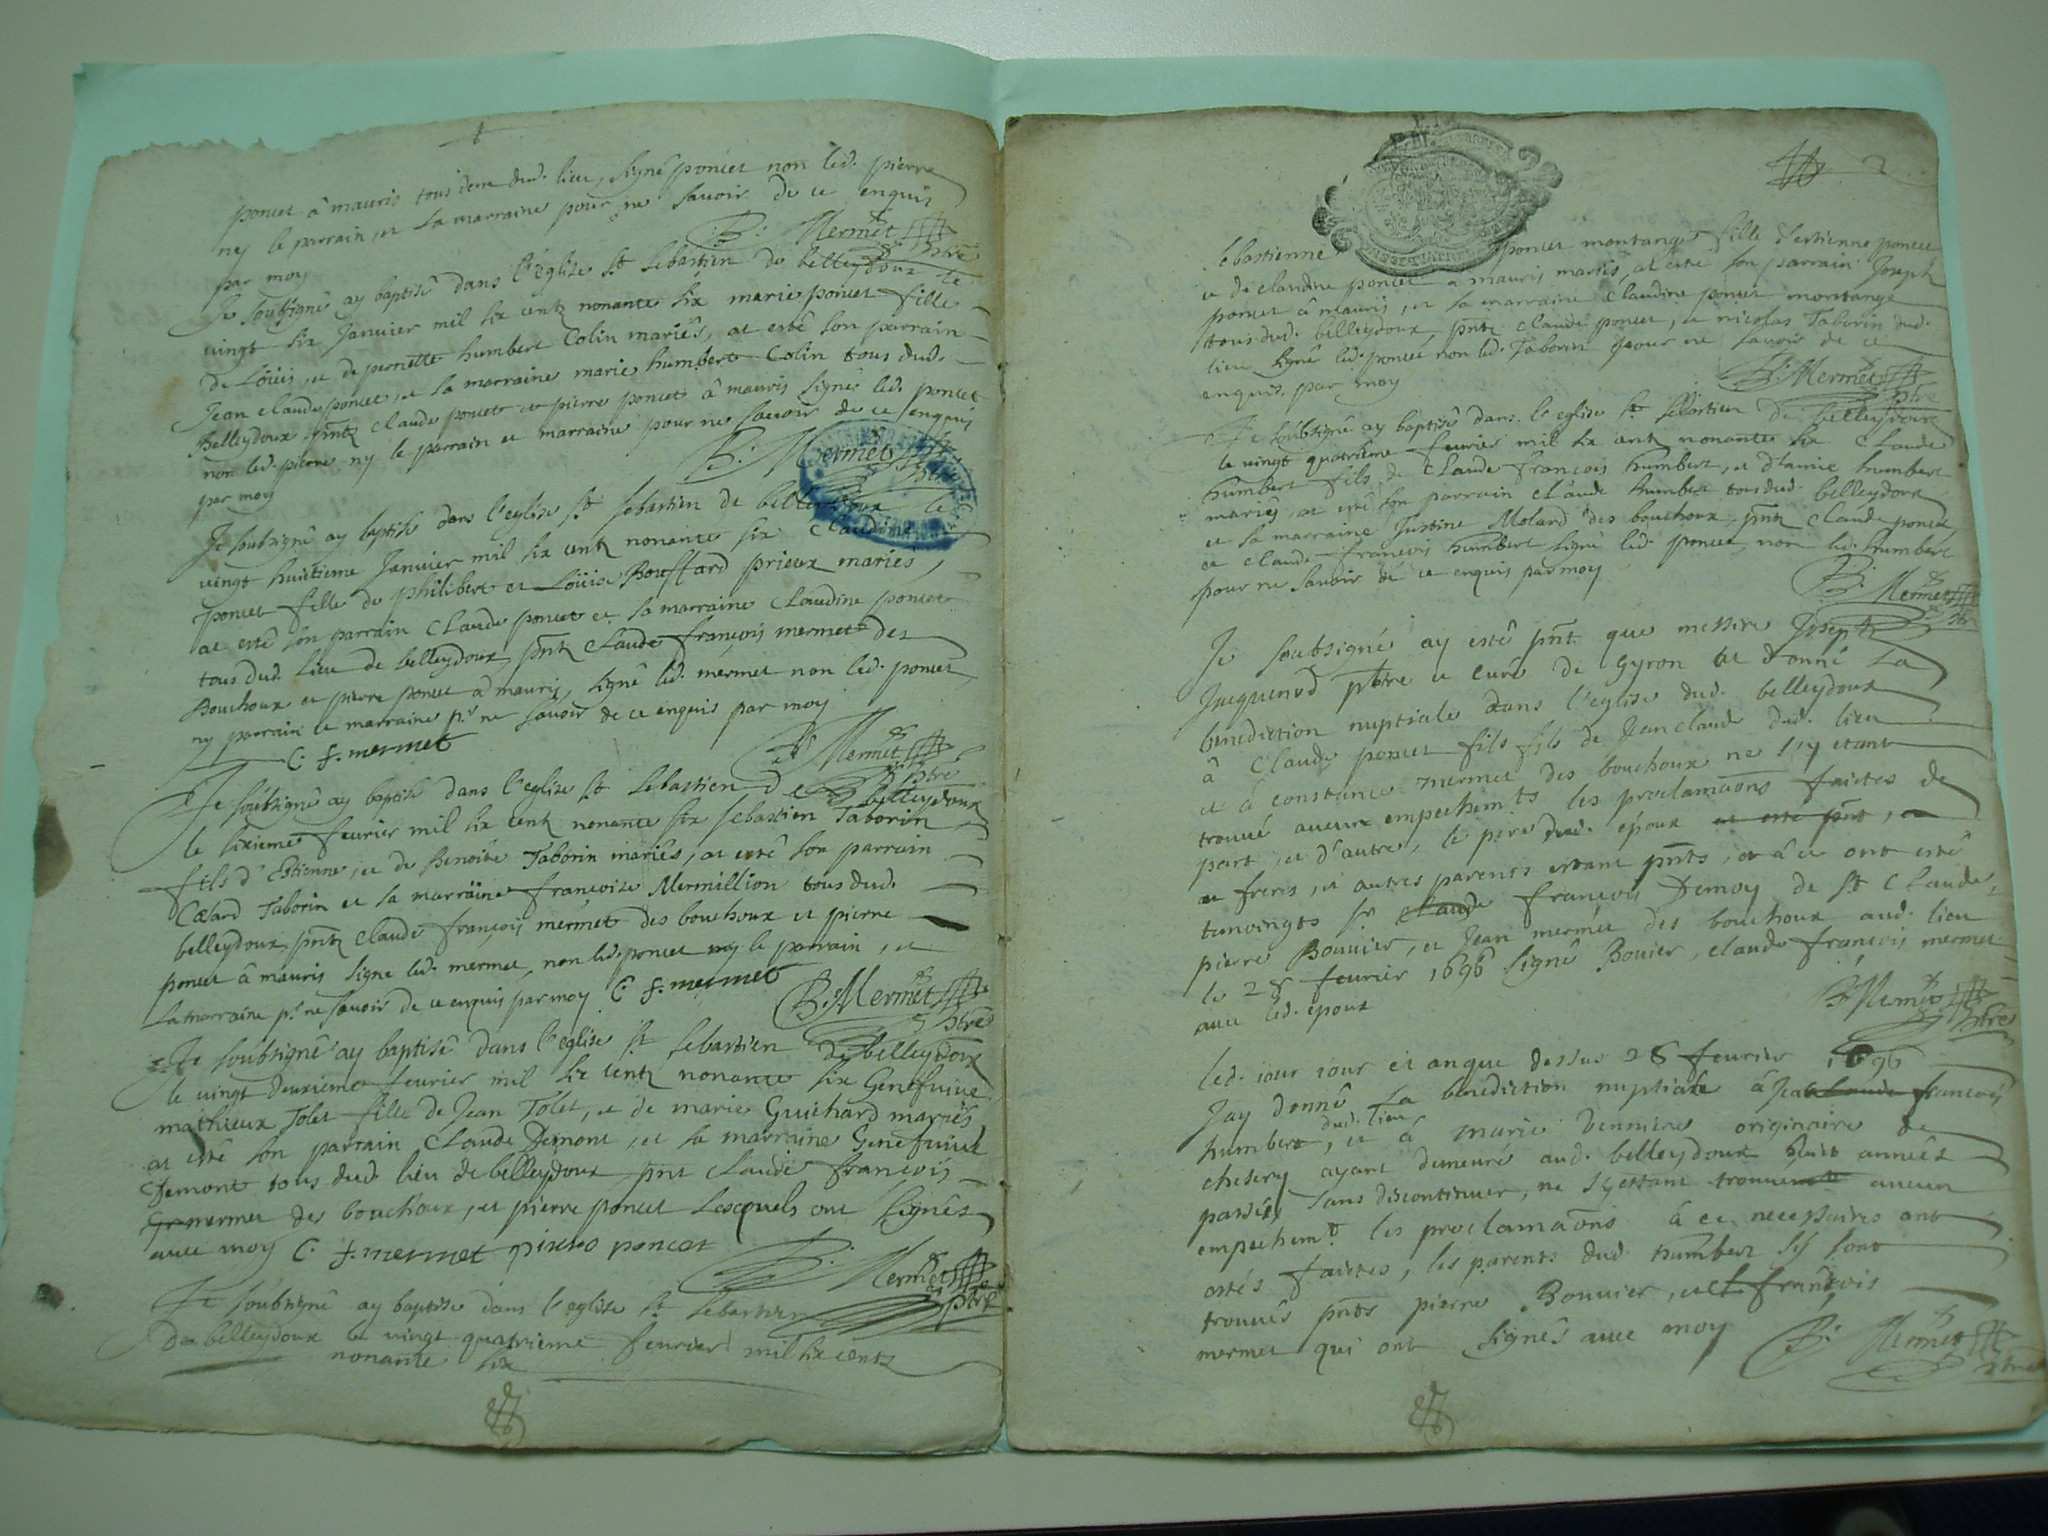 poncet â mauris tous deux dud. lieu, signé poncet non led. pierre
ny le parrain, et la marraine pour ne savoir de ce enquis
par moy B. Mermet pbtre
Je soubsigné ay baptisé dans l'église st sebastien de belleydoux le
vingt six Janvier mil six centz nonante six marie poncet fille
de Loüis, et de pernette humbert Colin mariés, at esté son parrain
Jean claude poncet, et la marraine marie humbert Colin tous dud.
Belleydoux pntz claude poncet et pierre poncet â mauris signé led. poncet
non led. pierre ny le parrain et marraine pour ne savoir de ce enquis
par moy B. Mermet pbtre
Je soubsigné ay baptisé dans l'eglise st sebastien de belleydoux le
vingt huitieme Janvier mil six centz nonante six Claudine
poncet fille de philibert et Loüise Bouffard prieux mariés,
at esté son parrain Claude poncet et sa marraine Claudine poncet
tous dud. lieu de belleydoux, pntz Claude françois mermet des
Bouchoux et pierre poncet â mauris, signé led. mermet non led. poncet
ny parrain et marraine pr ne savoir de ce enquis par moy
C. f. mermet B. Mermet pbtre
Je soubsigné ay baptisé dans l'eglise st sebastien de belleydoux
le sixieme fevrier mil six centz nonante six sebastien Taborin
fils d'Estienne, et de Benoite Taborin mariés, at esté son parrain
Cœlard Taborin et sa marraine françoise Mermillion tous dud.
belleydoux, pntz claude françois mermet des bouchoux et pierre
poncet â mauris signé led. mermet, non led. poncet ny le parrain, et
la marraine pr ne savoir de ce enquis par moy C. f. mermet B. Mermet pbtre
Je soubsigné ay baptisé dans l'eglise st sebastien de belleydoux
le vingt deuxieme fevrier mil six centz nonante six Genefvive
mathieux Tolet fille de Jean Tolet, et de marie Guichard mariés
at esté son parrain Claude Demont, et sa marraine Genefvive
Demont tous dud. lieu de belleydoux pnt claude françois
mermet des bouchoux, et pierre poncet Lesquels ont signés
avec moy C. f. mermet pierre poncet
B. Mermet pbtre
Je soubsigné ay baptisé dans l'eglise st sebastien
De belleydoux le vingt quatrieme fevrier mil six centz
nonante six
2
sebastienne poncet montange fille d'estienne poncet
et de claudine poncet a mauris mariés, at esté son parrain Joseph
poncet â mauris, et sa marraine Claudine poncet montange
tous dud. belleydoux, pntz claude poncet, et nicolas Taborin dud.
lieu signé led. poncet non led. Taborin pour ne savoir de ce
enquis par moy B. Mermet pbtre
Je soubsigné ay baptisé dans l'eglise st sebastien de belleydoux
le vingt quatrieme fevrier mil six centz nonante six Claude
humbert fils de Claude françois humbert, et humbert
mariés, at esté son parrain claude humbert tous dud. belleydoux
et sa marraine Justine Molard des bouchoux, pntz claude poncet
et claude françois humbert signé led. poncet, non led. humbert
pour ne savoir de ce enquis par moy
B. Mermet pbtre
Je soubsigné ay esté pnt que messire Joseph
Jacquenod pbtre et curé de Gyron at donné la
bénédiction nuptiale dans l'eglise dud. belleydoux
â Claude poncet fils fils de Jean claude dud. lieu
et â constance mermet des bouchoux ne s'iy étant
trouvé aucunx empechemts les proclamaōns faictes de
part, et d'autre, le pere dud. époux at esté pnt, et
et freres, et autres parents estant pnts, et â ce ont esté
temoingts sr claude françois Demoy de st Claude,
pierre Bouvier, et Jean mermet des bouchoux aud. lieu
le 28 fevrier 1696 signé Bouier, claude françois mermet
avec led. époux
B. Mermet pbtre
led. iour iour et an que dessus 28 fevrier 1696
Jay donné la benediction nuptiale â françois
dud. lieu
humbert, et â marie originaire de
chesery ayant demeuré aud. belleydoux huit années
passées sans discontinuer, ne s'yestant trouvé aucun
empechemt les proclamaōns â ce necessaires ont
estés faictes, les parents dud. humbert s'y sont
trouvés pnts pierre Bouvier, et françois
mermet qui ont signés avec moy B. Mermet pbtre